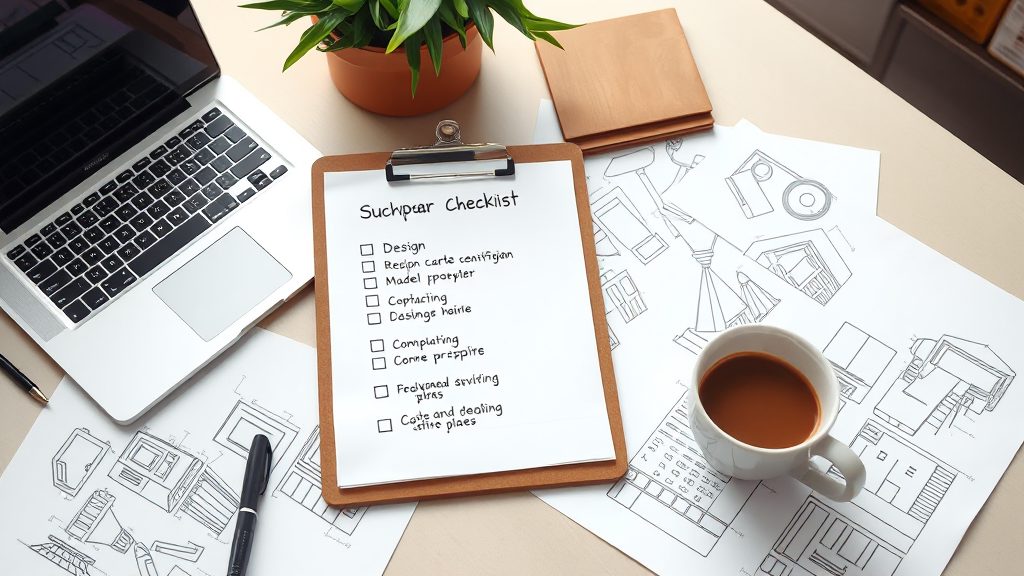 Suchpar Checklist
Design
Redpn carte centifijan
Madel rporpler
Coptacting
Dasings hairie
Complating
Come preppire
Fedyonad svrving
plras
Coste and deoling
estire plaes